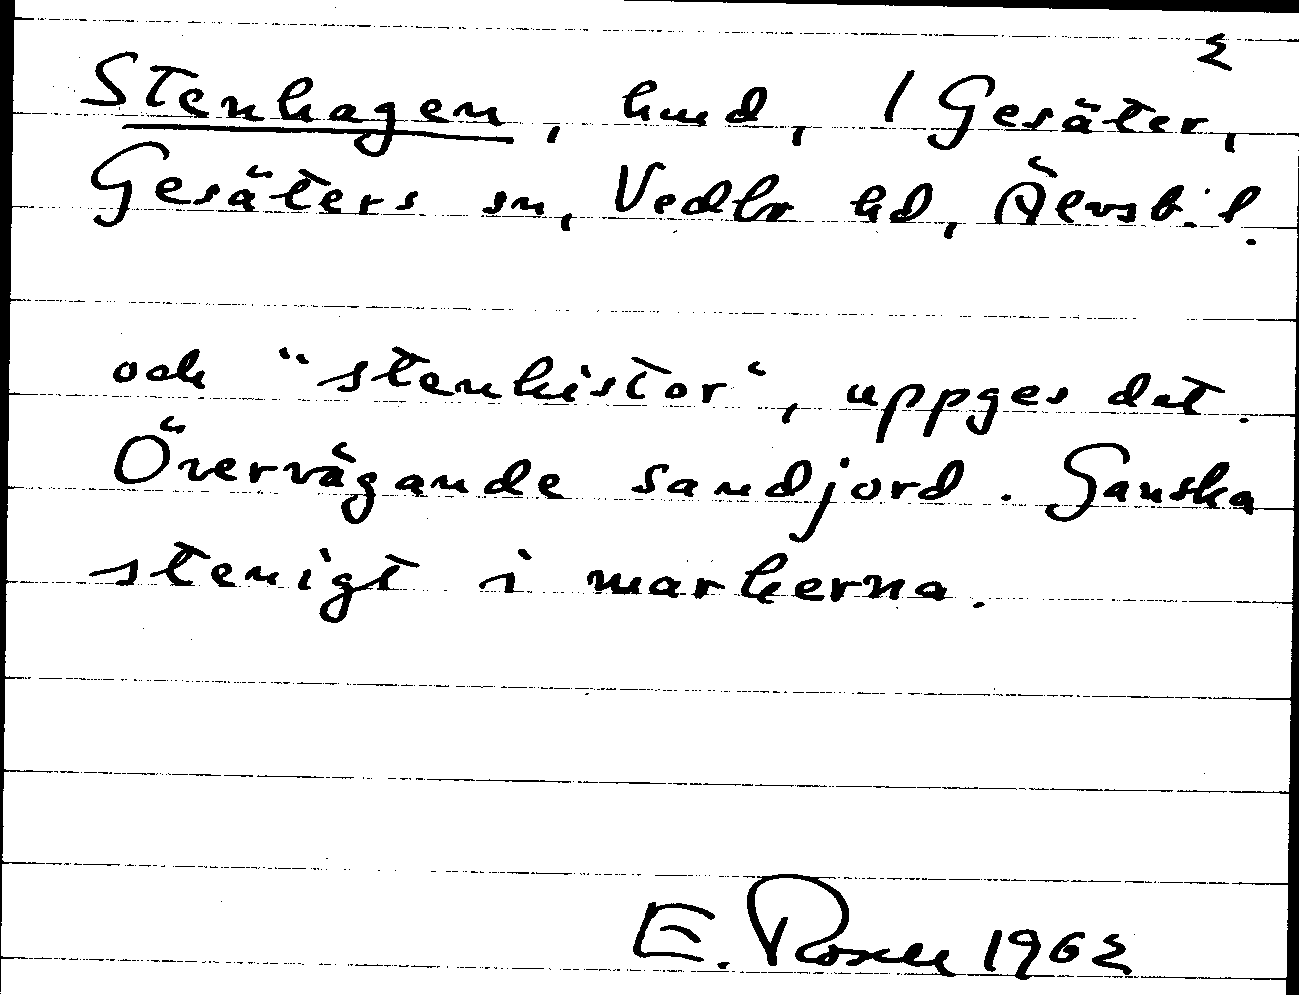 2
Stenhagen, hmd, 1 Gesäter,
Gesäters sn, Vedbo hd, Älvsb. l.
och "stenkistor", uppges det.
Övervägande sandjord. Ganska
stenigt i markerna.
E. Rosell 1962